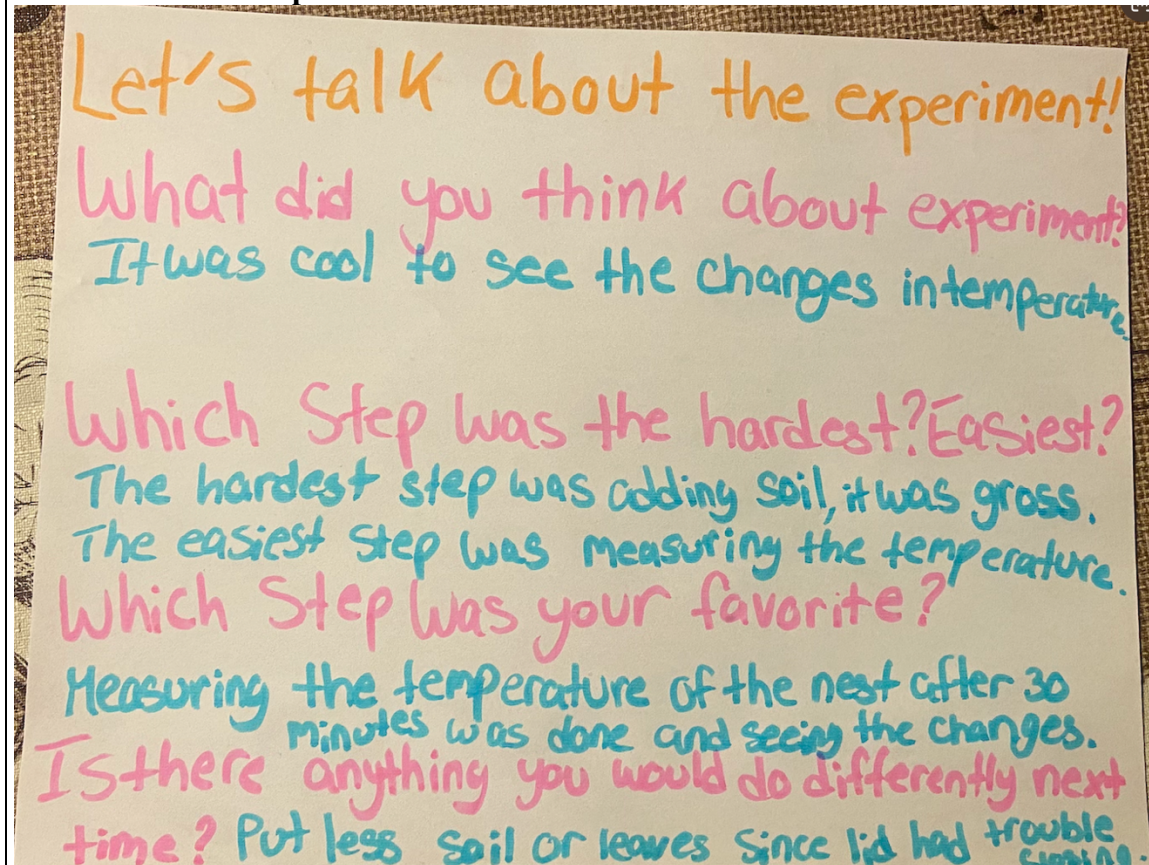 Let's talk about the experiment!
What did you think about experiment?
It was cool to see the changes in temperature.
Which Step was the hardest? Easiest?
The hardest step was adding soil, it was gross.
The easiest step was measuring the temperature.
Which Step was your favorite?
Measuring the temperature of the nest after 30
minutes was done and seeing the changes.
Is there anything you would do differently next
time? Put less soil or leaves since lid had trouble